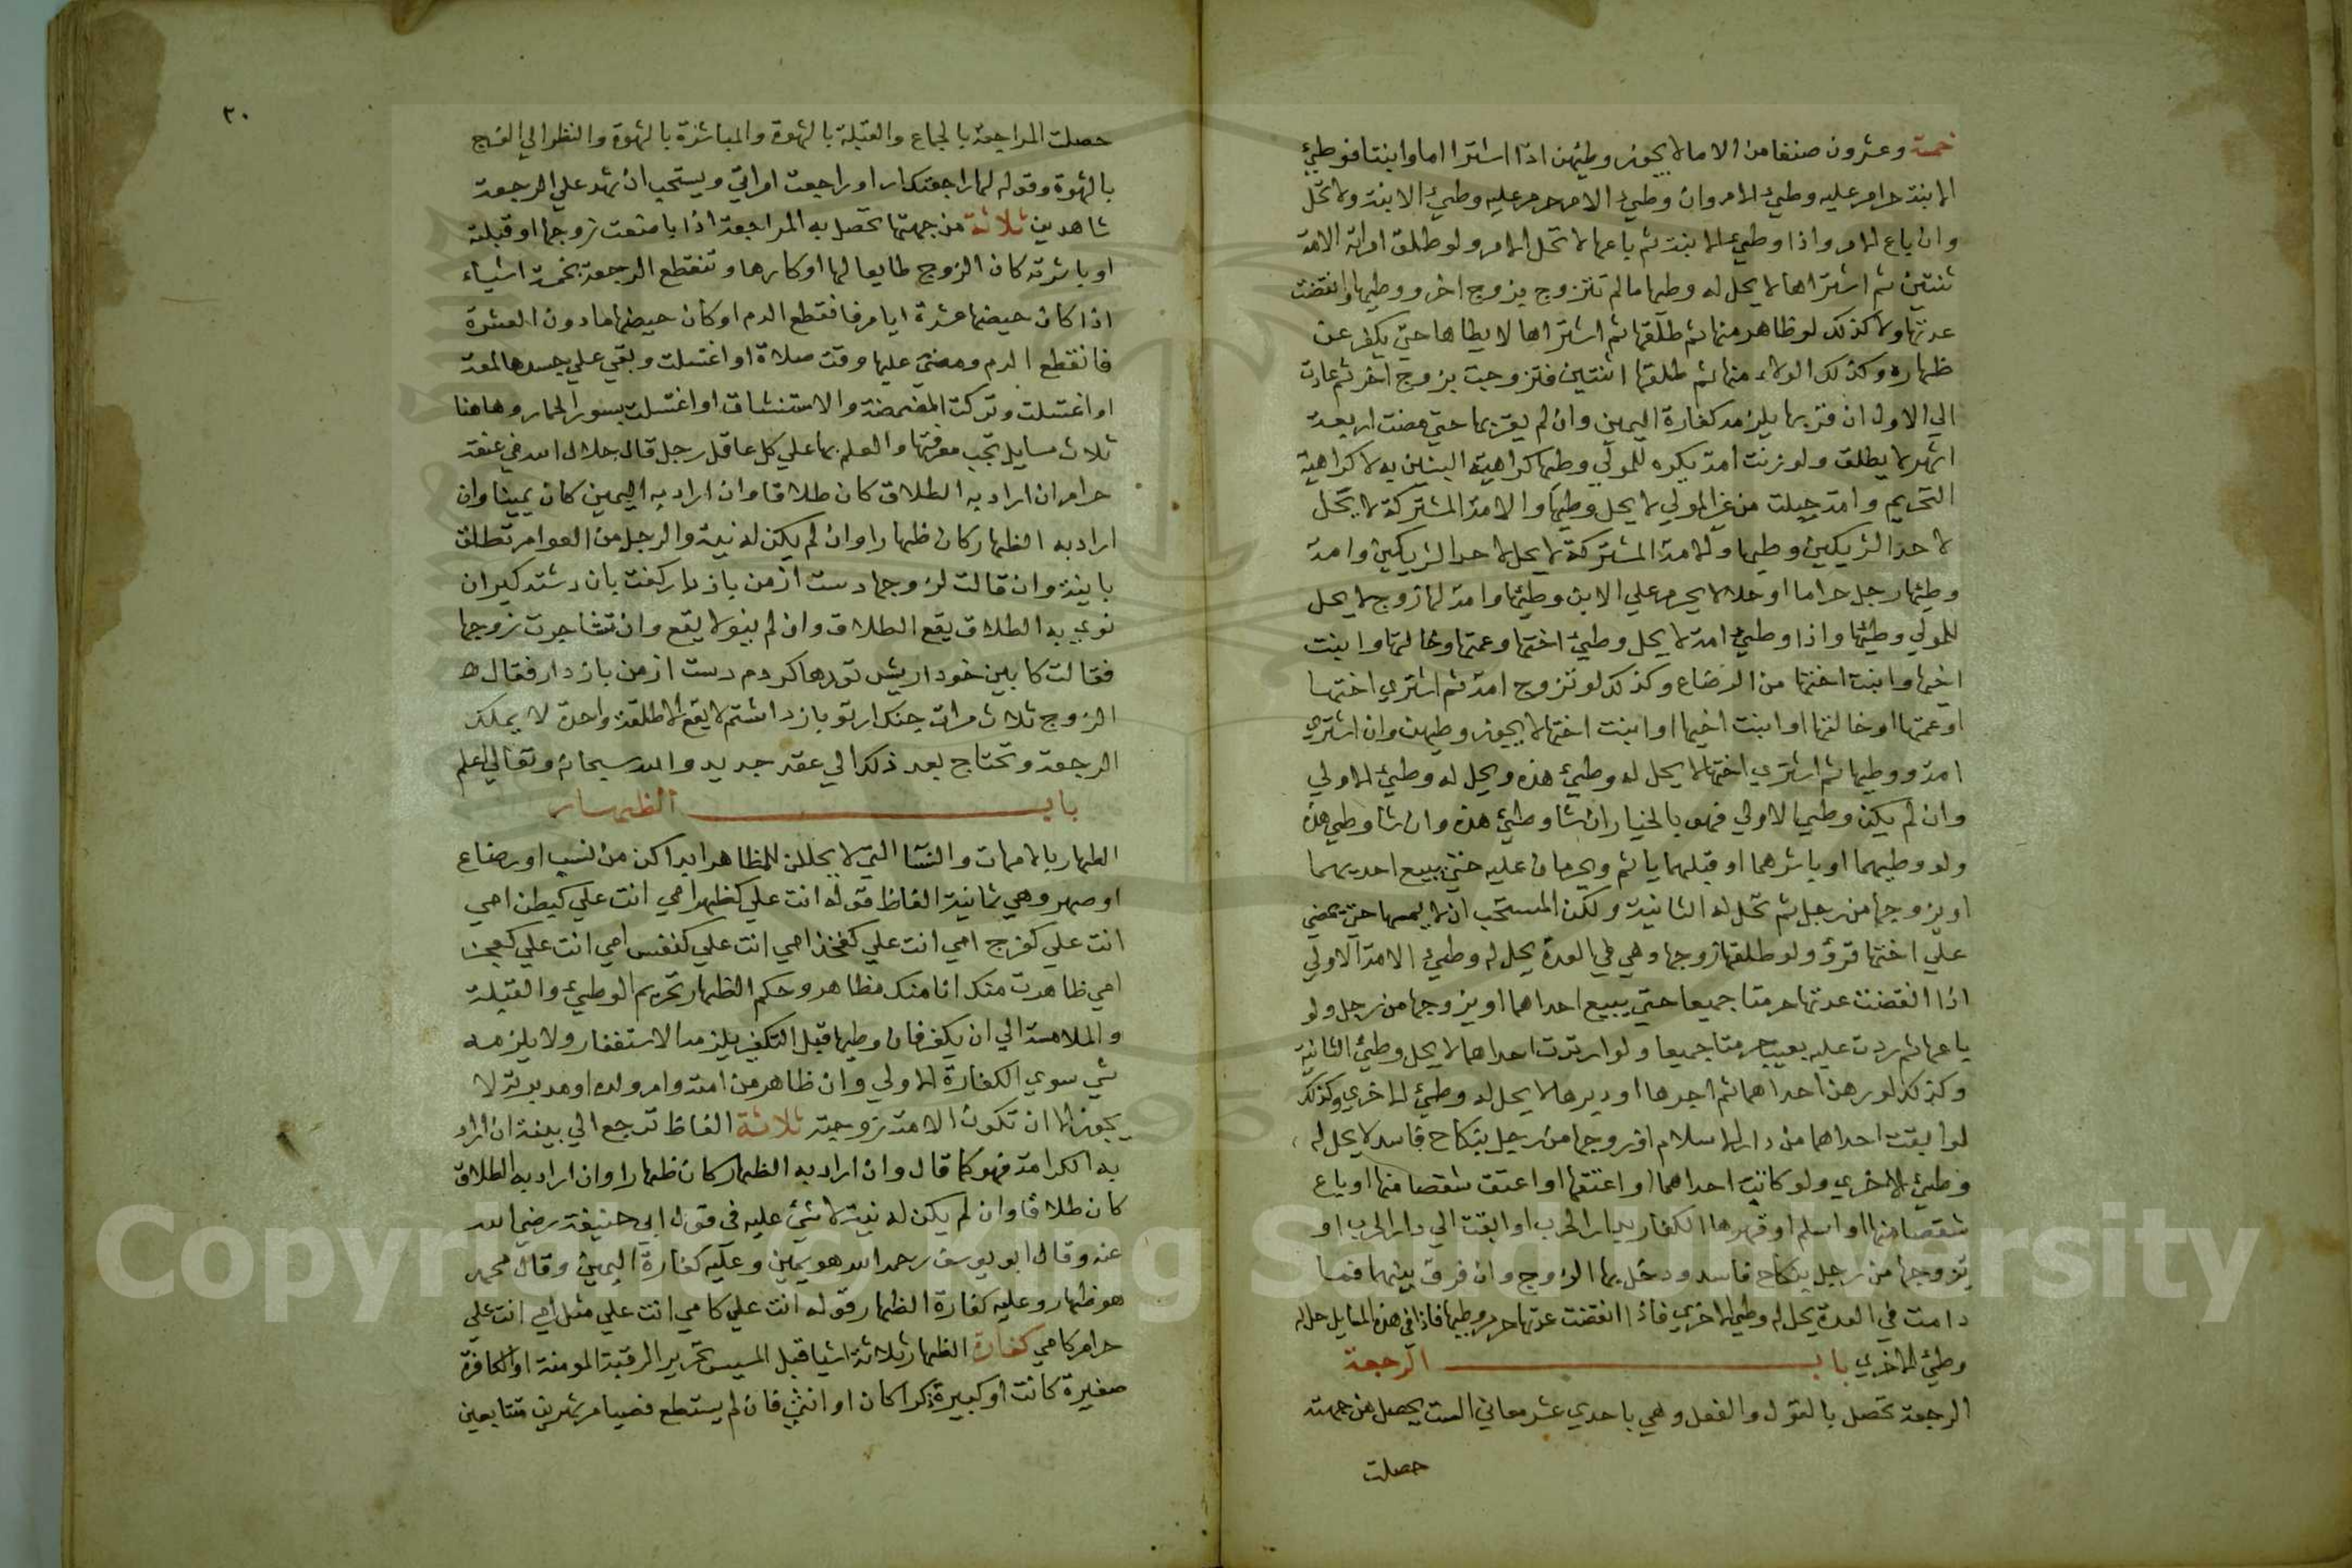 خمسة وعشرون صنفا من الاما لا يجوز وطيهن اذا اشترا اما وابنتا فوطئ
الابنة حرام عليه وطئ الام وان وطئ الام حرم عليه وطئ الابنة ولا تحل
وان باع الام واذا وطئ الابنة ثم باعها لا تحل الام ولو طلق امراته الامة
ثنتين ثم اشتراها لا يحل له وطيها ما لم تتزوج بزوج اخر ووطيها وانقضت
عدتها ولا كذلك لو ظاهر منها ثم طلقها ثم اشتراها لا يطاها حتي يكفر عن
ظهاره وكذلك منها ثم طلقها اثنتين فتزوجت بزوج اخر ثم عادت
الي الاول ان قربها يلزمه كفارة اليمين وان لم يقربها حتي مضت اربعة
اشهر لا يطلق ولو زنت امة يكره للمولي وطيها كراهية التنزيه لا كراهية
التحريم وامة حبلت من غير المولي لا يحل وطيها والامة المشتركة لا يحل
لاحد الشريكين وطيها والامة المشتركة لا يحل لاحد الشريكين وامة
وطئها رجل حراما او حلالا يحرم علي الابن وطئها وامة لها زوج لا يحل
للمولي وطئها واذا وطئ امة لا يحل وطئ اختها وعمتها وخالتها وابنت
اخيها وابنت اختها من الرضاع وكذلك لو تزوج امة ثم اشتري اختها
او عمتها او خالتها او ابنت اخيها او ابنت اختها لا يجوز وطيهن وان اشتري
امة ووطيها ثم اشتري اختها لا يحل له وطئ هذه ويحل له وطئ الاولي
وان لم يكن وطئ الاولي فهو بالخيار ان شا وطئ هذه وان شا وطئ هذه
ولو وطيهما او باشرهما او قبلهما ياثم ويحرمان عليه حتي يبيع احديهما
او يزوجها من رجل ثم تحل له الثانية ولكن المستحب ان لا يمسها حتي تمضي
علي اختها قرؤ ولو طلقها زوجها وهي في العدة يحل له وطئ الامة الاولي
اذا انقضت عدتها حرمتا جميعا حتي يبيع احداهما او يزوجها من رجل ولو
باعها ثم ردت عليه بعيب حرمتا جميعا ولو ارتدت احداهما لا يحل وطئ الثانية
وكذلك لو رهن احداهما ثم اجرها او دبرها لا يحل له وطئ الاخري وكذلك
لو ابقت احداهما من دار الاسلام او زوجها من رجل بنكاح فاسد لا يحل له
وطئ الاخري ولو كاتبت احداهما او اعتقها او اعتق شقصا منها او باع
شقصا منها او اسلم او قهرها الكفار بدار الحرب او ابقت الي دار الحرب او
يزوجها من رجل بنكاح فاسد ودخل بها الزوج وان فرق بينهما فما
دامت في العدة يحل له وطئ الاخري فاذا انقضت عدتها حرم وطيها فاذا في هذه المسايل حل له
وطئ الاخري باب الرجعة
الرجعة تحصل بالقول والفعل وهي باحدي عشر معاني الست يحصل من جهته
حصلت
٣٠
حصلت المراجعة بالجماع والقبلة بالشهوة والمباشرة بالشهوة والنظر الي الفرج
بالشهوة وقوله لها راجعتك او راجعت امراتي ويستحب ان يشهد علي الرجعة
شاهدين ثلاثة من جهتها تحصل به المراجعة اذا جامعت زوجها او قبلته
او باشرته كان الزوج طايعا لها او كارها وتنقطع الرجعة بخمسة اشياء
اذا كان حيضها عشرة ايام فانقطع الدم او كان حيضها ما دون العشرة
فانقطع الدم ومضي عليها وقت صلاة او اغتسلت وبقي علي جسدها لمعة
او اغتسلت وتركت المضمضة والاستنشاق او اغتسلت بسور الحمار وهاهنا
ثلاث مسايل تجب معرفتها والعلم بها علي كل عاقل رجل قال حلال الله عنه
حرام ان اراد به الطلاق كان طلاقا وان اراد به اليمين كان يمينا وان
اراد به الظهار كان ظهارا وان لم يكن له نية والرجل من العوام تطلق
باينة وان قالت لزوجها دست از من باز دار كفت باز داشته كير ان
نوي به الطلاق يقع الطلاق وان لم ينو لا يقع وان تشاجرت زوجها
فقالت كابين خود اربش تو رها كردم دست از من باز دار فقال
الزوج ثلاث مرات جنك ارتو باز داشتم لا يقع الا طلقة واحدة لا يملك
الرجعة وتحتاج بعد ذلك الي عقد جديد والله سبحانه وتعالي اعلم
باب الظهار
الظهار بالامهات والنسا التي لا يحللن للمظاهر ابدا كن من نسب او رضاع
او صهر وهي ثمانية الفاظ قوله انت علي كظهر امي انت علي كبطن امي
انت علي كفرج امي انت علي كفخذ امي انت علي كنفس امي انت علي كعجز
امي ظاهرت منك انا منك مظاهر وحكم الظهار تحريم الوطئ والقبلة
والملامسة الي ان يكفر فان وطيها قبل التكفير يلزمه الاستغفار ولا يلزمه
شي سوي الكفارة الاولي وان ظاهر من امته وام ولده او مدبرته لا
يجوز الا ان تكون الامة زوجته ثلاثة الفاظ ترجع الي ان اراد
به الكرامة فهو كما قال وان اراد به الظهار كان ظهارا وان اراد به الطلاق
كان طلاقا وان لم يكن له نية لا شئ عليه في قول ابي حنيفة رضي الله
عنه وقال ابو يوسف رحمه الله هو يمين وعليه كفارة اليمين وقال محمد
هو ظهار وعليه كفارة الظهار قوله انت علي كامي انت علي مثل امي انت علي
حرام كامي كفارة الظهار ثلاثة اشيا قبل المسيس تحرير الرقبة المومنة او الكافرة
صغيرة كانت او كبيرة ذكرا كان او انثي فان لم يستطع فصيام شهرين متتابعين
Copyright © King Saud University